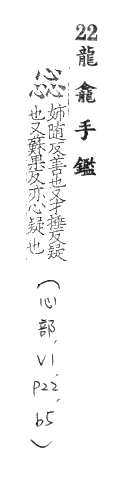 22龍龕手鑑
惢
姊随反善也又才捶反疑
也又蘇果反亦心疑也
(心部, V1, p22, b5)